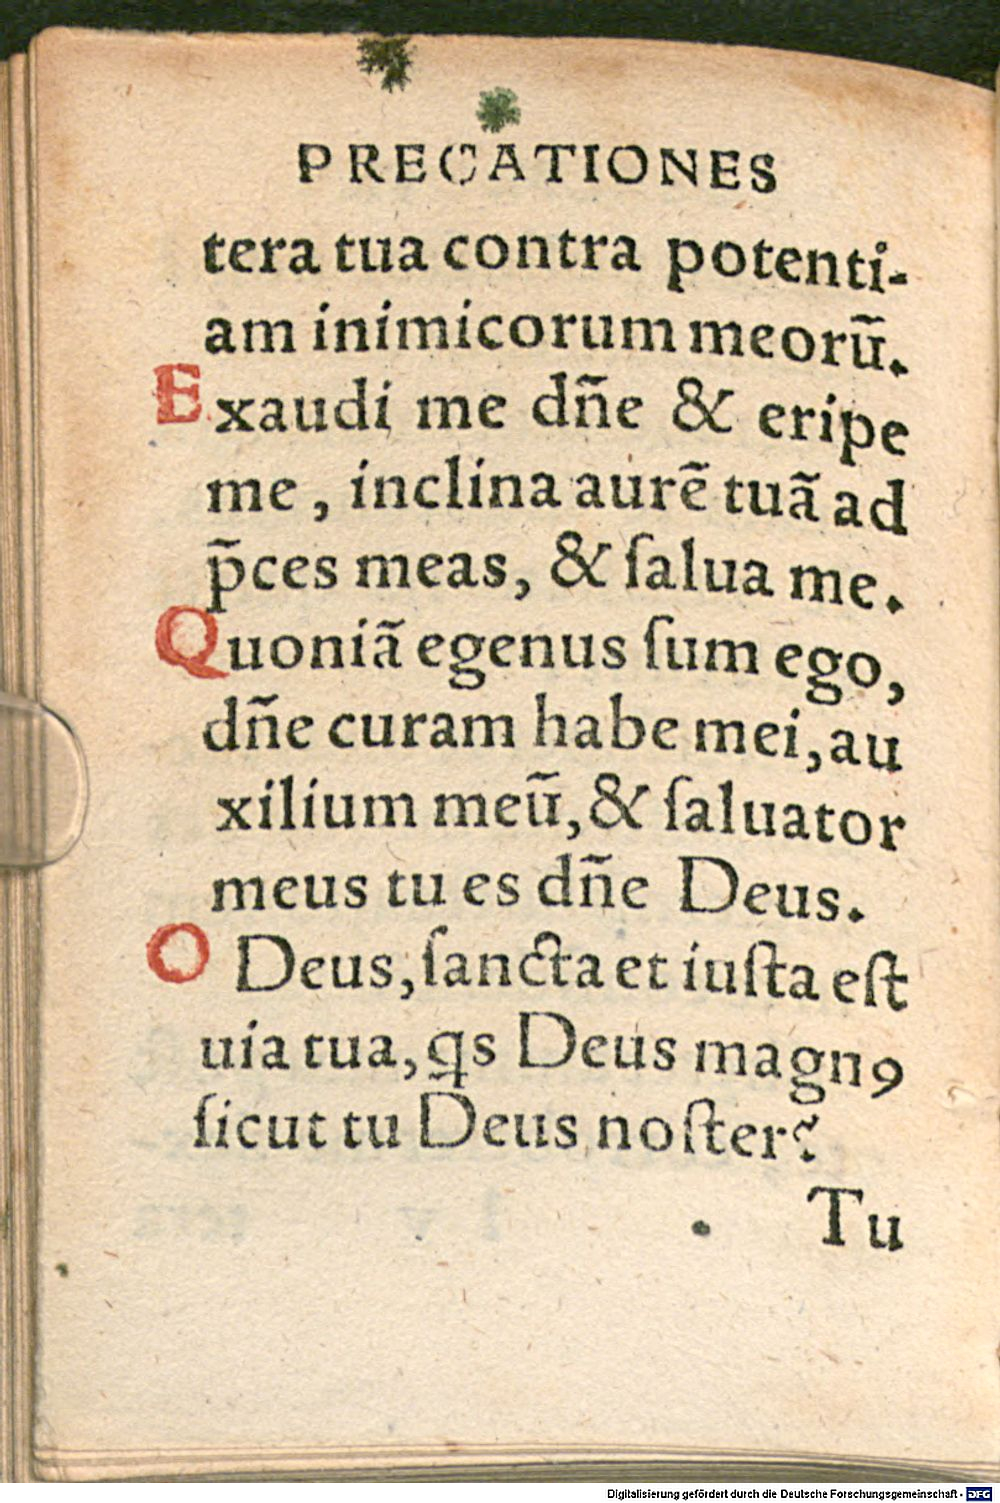 PRECATIONES
tera tua contra potenti-
am inimicorum meorũ.
Exaudi me dñe & eripe
me, inclina aurẽ tuã ad
p̃ces meas, & ſalua me.
Quoniã egenus ſum ego,
dñe curam habe mei, au
xilium meũ, & ſaluator
meus tu es dñe Deus.
O Deus, ſancta et iuſta eſt
uia tua, qs Deus magnꝯ
ſicut tu Deus noſter?
Tu
Digitalisierung gefördert durch die Deutsche Forschungsgemeinschaft - DFG